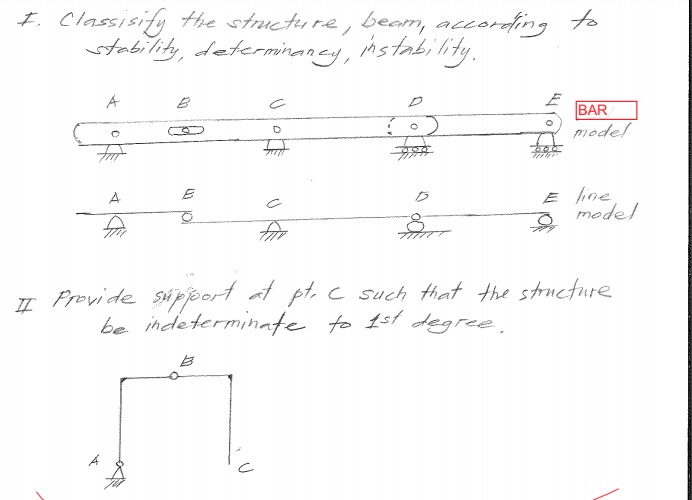 I. Classisify the structure, beam, according to
stability, determinancy, instability.
A B C D E
BAR
model
A B C D E
line
model
II Provide support at pt. C such that the structure
be indeterminate to 1st degree.
B
A
C